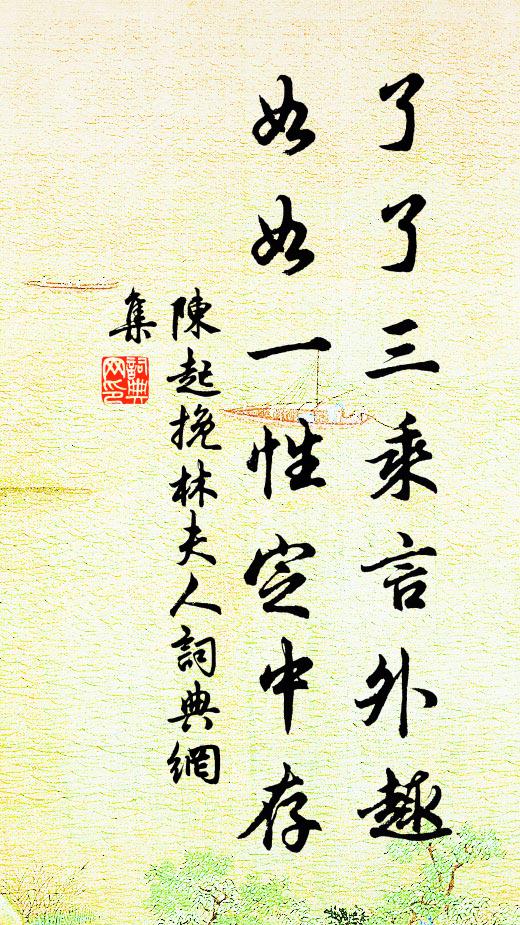 了了三乘言外趣
如如一性定中存
陳起挽林夫人詞典網
集
詞典
网印